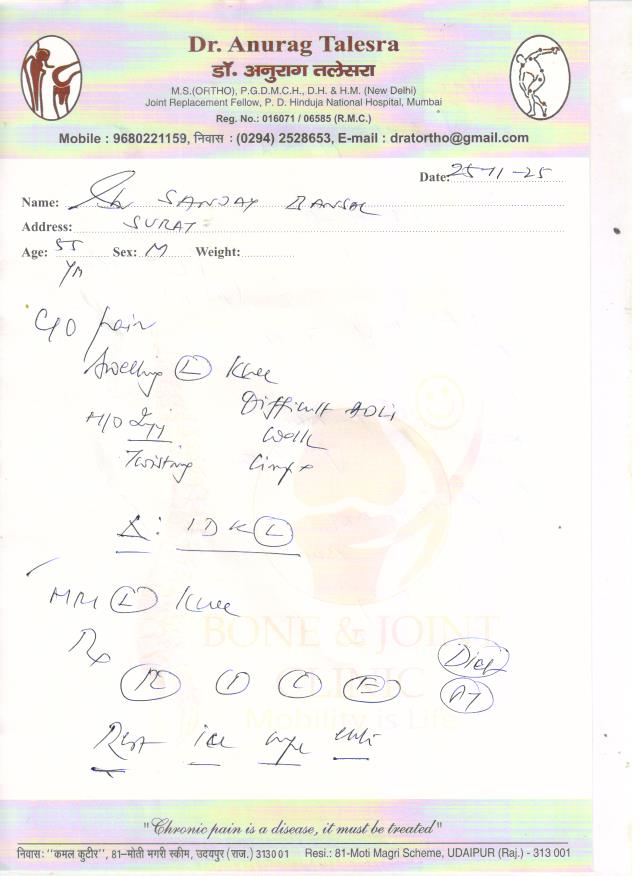 Dr. Anurag Talesra
डॉ. अनुराग तलेसरा
M.S.(ORTHO), P.G.D.M.C.H., D.H. & H.M. (New Delhi)
Joint Replacement Fellow, P. D. Hinduja National Hospital, Mumbai
Reg. No.: 016071 / 06585 (R.M.C.)
Mobile : 9680221159, निवास : (0294) 2528653, E-mail : dratortho@gmail.com
Date: 25-11-25
Name: Sh SANJAY BANSAL
Address: SURAT
Age: 55 Sex: M Weight:
Yrs
C/O pain
Swelling L Knee
H/O Difficult ADLs
Walk
Twisting Limp
Δ: IDK L
MRI L Knee
Rx
R I C E
Rest ice
BONE & JOINT
CLINIC
Mobility is Life
"Chronic pain is a disease, it must be treated"
निवास: "कमल कुटीर", 81-मोती मगरी स्कीम, उदयपुर (राज.) 313001 Resi.: 81-Moti Magri Scheme, UDAIPUR (Raj.) - 313 001